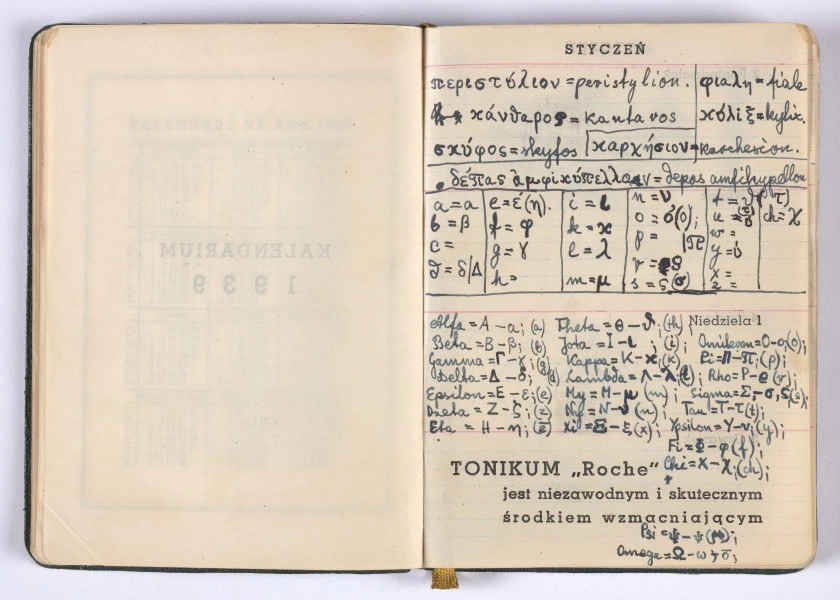 KALENDARIUM
1939
STYCZEŃ
περιστύλιον = peristylion. | φιαλη = fiale
κάνθαρος = kantaros | κύλιξ = kylix.
σκύφος = skyfos | καρχήσιον = karchesion.
δέπας ἀμφικύπελλον = depas amfikypellon
a = α | e = έ (η). | i = ι | n = ν | t = ϑ (τ)
b = β | f = φ | k = κ | o = σ̓ (ο); | u = | ch = χ
c = | g = γ | l = λ | p = π | w =
d = δ/Δ | h = | m = μ | r = ρ | y = ύ
s = ς (σ) | x =
z =
Niedziela 1
Alfa = Α – α; (a) Theta = θ – ϑ; (th)
Beta = Β – β; (b) Jota = Ι – ι; (i); Omikron = Ο – ο; (o);
Gamma = Γ – γ; (g) Kappa = Κ – κ; (k) Pi = Π – π; (p);
Delta = Δ – δ; (d) Lambda = Λ – λ (l); Rho = Ρ – ρ (r);
Epsilon = Ε – ε; (e) My = Μ – μ (m); Sigma = Σ, – σ, ς (s);
Dzeta = Ζ – ζ; (z) Ny = Ν – ν (n); Tau = Τ – τ (t);
Eta = Η – η; (e) Xi = Ξ – ξ (x); Ypsilon = Υ – υ; (y);
Fi = Φ – φ (f);
TONIKUM „Roche" Chi = Χ – χ; (ch);
jest niezawodnym i skutecznym
środkiem wzmacniającym
Psi = Ψ – ψ (ps);
Omega = Ω – ω